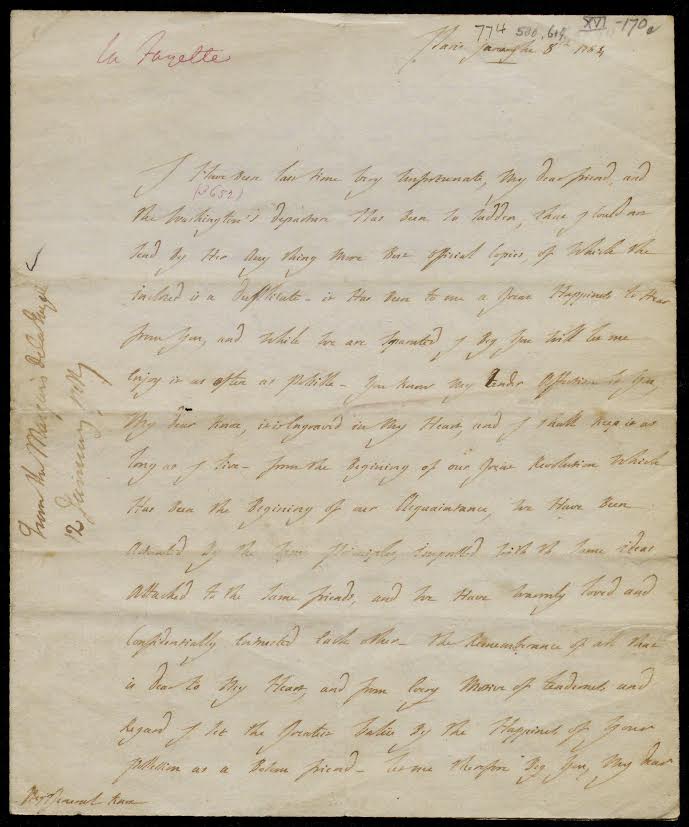 La Fayette
774 500,614 XVI -170
Paris January the 8th 1784
I Have Been last time Very Unfortunate, My dear friend, and
(3652)
the Washington's departure Has Been so sudden, that I Could not
Send By Her Any thing More But official Copies, of Which the
inclosed is a Duplicate - it Has Been to me a Great Happiness to Hear
from You, and While We are Separated I Beg You will let me
Enjoy it as often as possible - You know My tender Affection to You,
My dear Knox, is engraved in My Heart, and I shall keep it as
long as I live - from the Begining of our Great Revolution Which
Has Been the Begining of our Acquaintance, We Have Been
Actuated By the Same principles, impressed with the Same ideas
Attached to the Same friends, and We Have warmly loved and
Confidentially entrusted Each other - the Remembrance of all that
is dear to My Heart, and from Every Motive of tenderness and
Regard I Set the Greatest Value By the Happiness of Your
possession as a Bosom friend - let me therefore Beg You, My dear
Mjr General Knox
From the Marquis de la Fayette
12 January 1784